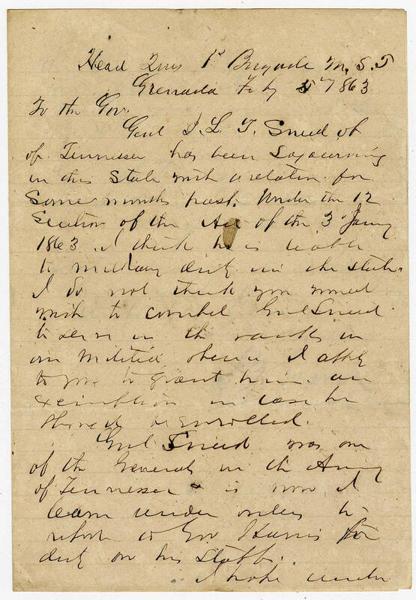 Head Qrs 1st Brigade M, S, T
Grenada Feby 5th 1863
To the Gov.
Genl J. L. T. Sneed of
of Tennessee has been Sojourning
in this State with a relation for
Some months past. Under the 12
Section of the Act of the 3 Jany
1863 I think he is liable
to military duty in the state
I do not think you would
wish to compel Genl Sneed
to serve in the ranks in
our Militia hence I apply
to you to grant him an
exemption in case he
should be enrolled.
Genl Sneed was one
of the Generals in the Army
of Tennessee & is now I
learn under orders to
report to Gov Harris for
duty on his Staff.
I hope under